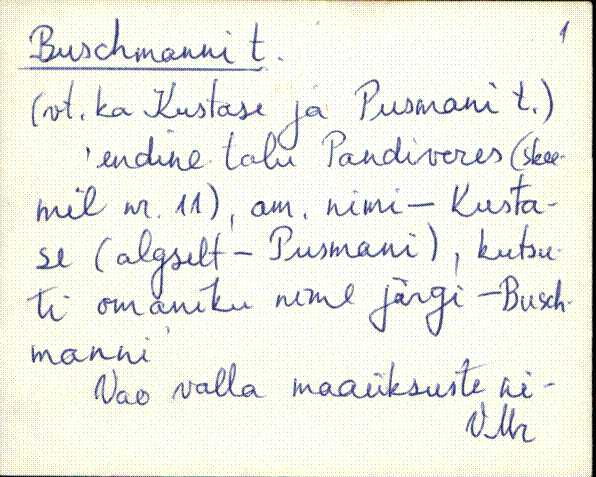 1
Buschmanni t.
(vt. ka Kustase ja Pusmani t.)
'endine talu Pandiveres (skee-
mil nr. 11), am. nimi – Kusta-
se (algselt – Pusmani), kutsu-
ti omaniku nime järgi – Busch-
manni'
Vao valla maaüksuste ni-
VMr